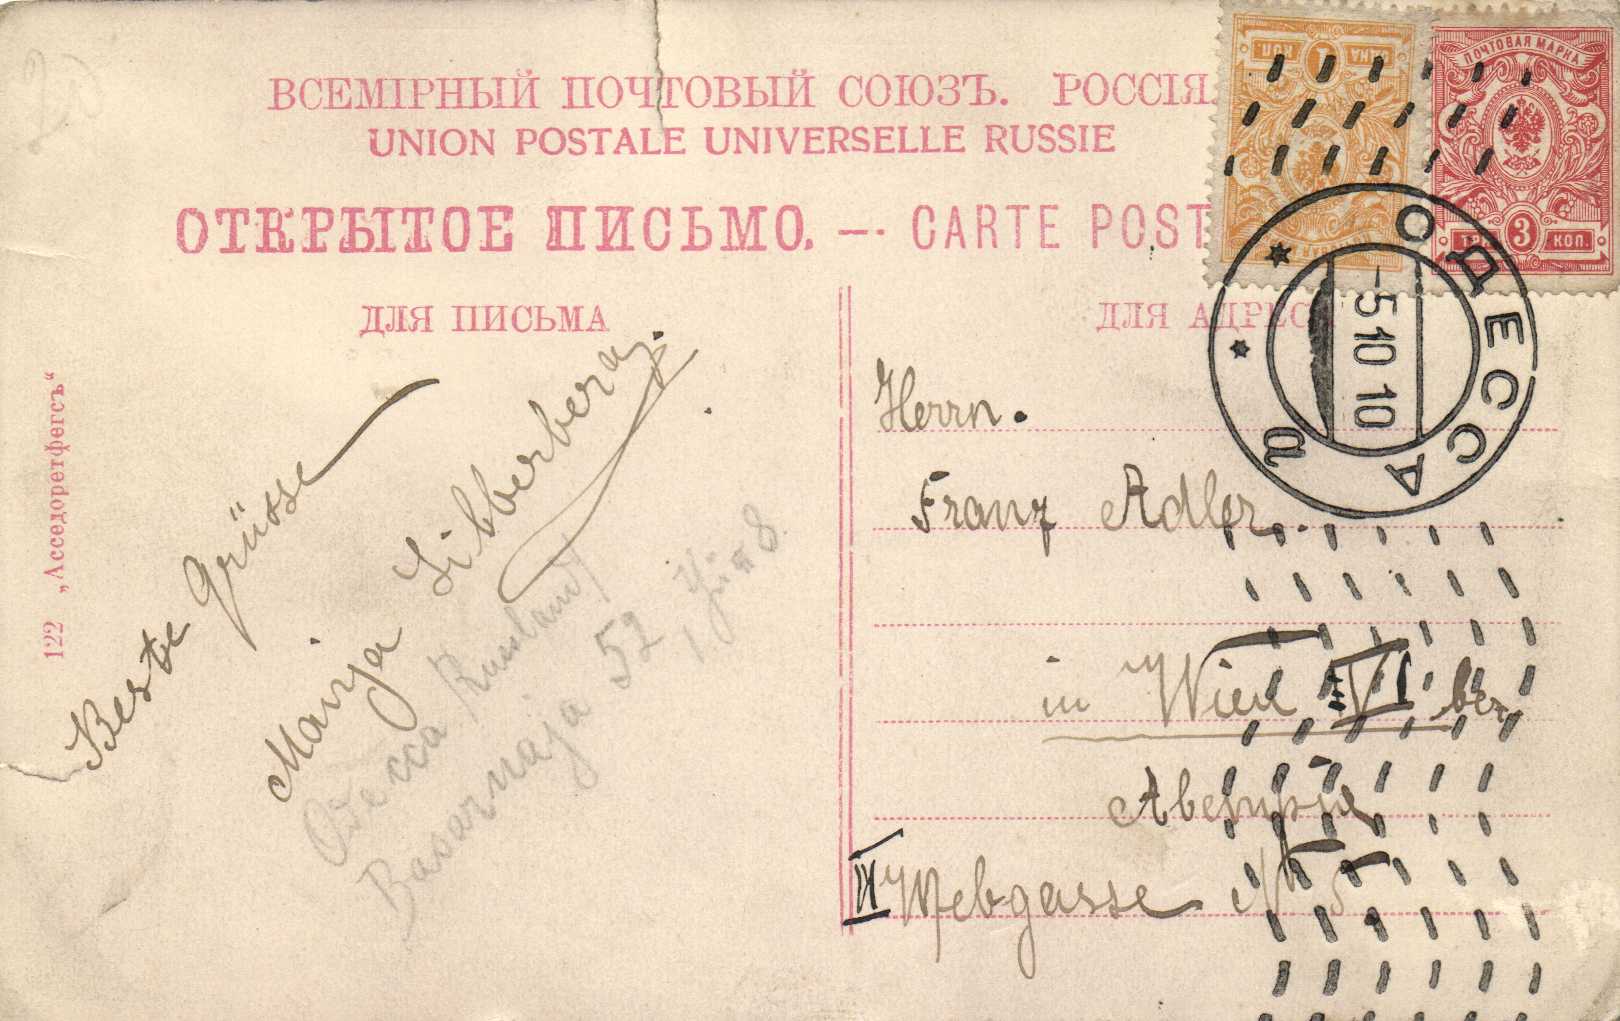 ВСЕМІРНЫЙ ПОЧТОВЫЙ СОЮЗЪ. РОССІЯ
UNION POSTALE UNIVERSELLE RUSSIE
ОТКРЫТОЕ ПИСЬМО. — CARTE POST
ДЛЯ ПИСЬМА
ДЛЯ АДРЕС
122 „Асседоретфегсъ“
Beste Grüsse
Manja Silberberg.
Odessa Russland
Basarnaja 52
8.
Herrn.
Franz Adler
in Wien VI ber
Webgasse № 5
ПОЧТОВАЯ МАРКА
ТРИ 3 КОП.
1 КОП
ОДЕССА
-5 10 10
а